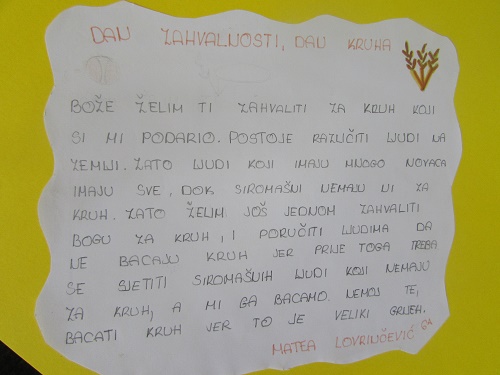 DAN ZAHVALNOSTI, DAN KRUHA
BOŽE ŽELIM TI ZAHVALITI ZA KRUH KOJI
SI MI PODARIO. POSTOJE RAZLIČITI LJUDI NA
ZEMLJI. ZATO LJUDI KOJI IMAJU MNOGO NOVACA
IMAJU SVE, DOK SIROMAŠNI NEMAJU NI ZA
KRUH. ZATO ŽELIM JOŠ JEDNOM ZAHVALITI
BOGU ZA KRUH, I PORUČITI LJUDIMA DA
NE BACAJU KRUH JER PRIJE TOGA TREBA
SE SJETITI SIROMAŠNIH LJUDI KOJI NEMAJU
ZA KRUH, A MI GA BACAMO. NEMOJ TE,
BACATI KRUH JER TO JE VELIKI GRIJEH.
MATEA LOVRINČEVIĆ 6A